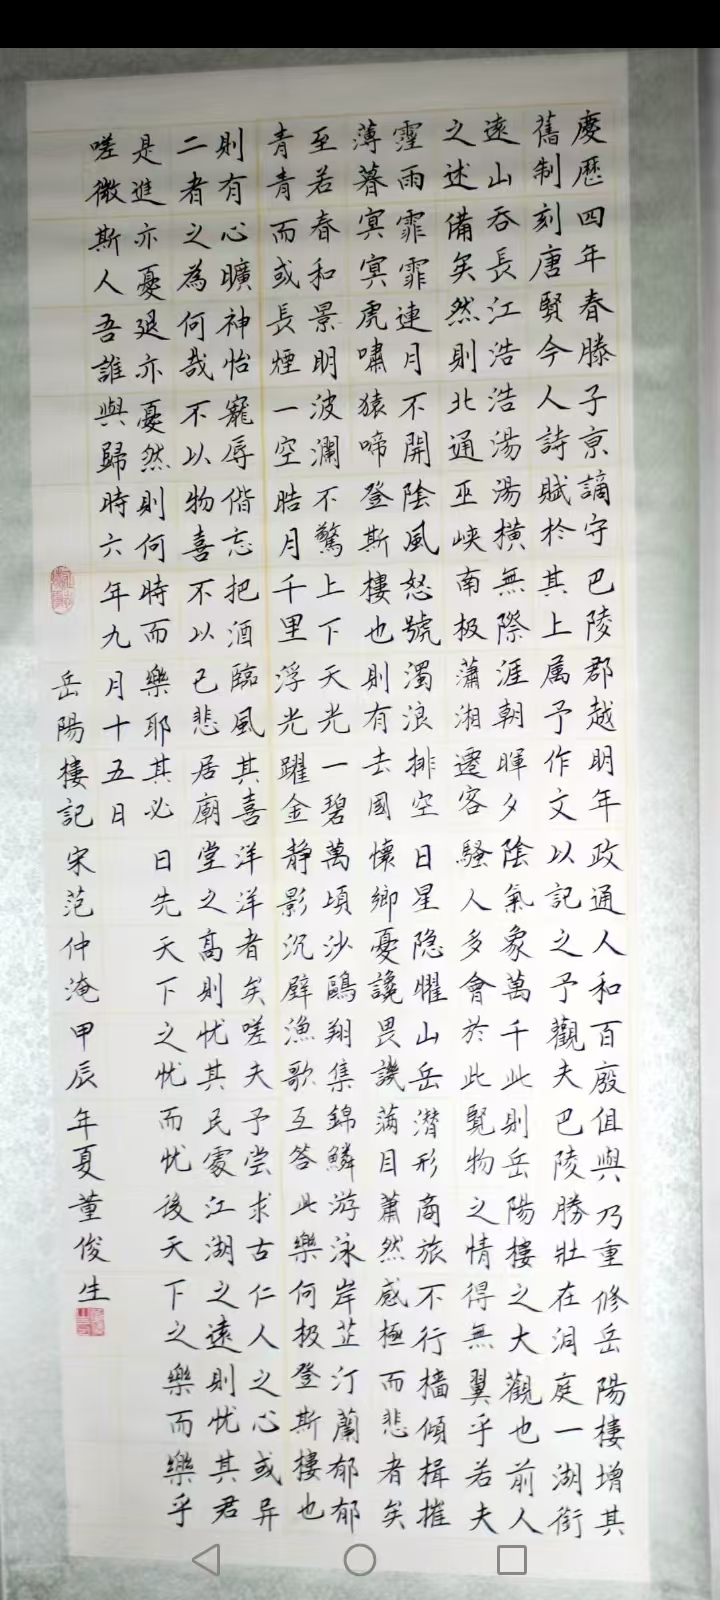 慶歷四年春滕子京謫守巴陵郡越明年政通人和百廢俱興乃重修岳陽樓增其
舊制刻唐賢今人詩賦於其上属予作文以記之予觀夫巴陵勝壯在洞庭一湖銜
遠山吞長江浩浩湯湯橫無際涯朝暉夕陰氣象萬千此則岳陽樓之大觀也前人
之述備矣然則北通巫峽南极瀟湘遷客騷人多會於此覽物之情得無翼乎若夫
霪雨霏霏連月不開陰風怒號濁浪排空日星隐懼山岳潛形商旅不行檣傾揖摧
薄暮冥冥虎嘯猿啼登斯樓也則有去國懷鄉憂讒畏譏滿目蕭然感極而悲者矣
至若春和景明波瀾不驚上下天光一碧萬頃沙鷗翔集錦鱗游泳岸芷汀蘭郁郁
青青而或長煙一空皓月千里浮光躍金静影沉壁漁歌互答此樂何极登斯樓也
則有心曠神怡寵辱偕忘把酒臨風其喜洋洋者矣嗟夫予嘗求古仁人之心或异
二者之為何哉不以物喜不以己悲居廟堂之高則忧其民處江湖之遠則忧其君
是進亦憂退亦憂然則何時而樂耶其必曰先天下之忧而忧後天下之樂而樂乎
嗟微斯人吾誰與歸時六年九月十五日
岳陽樓記宋范仲淹甲辰年夏董俊生